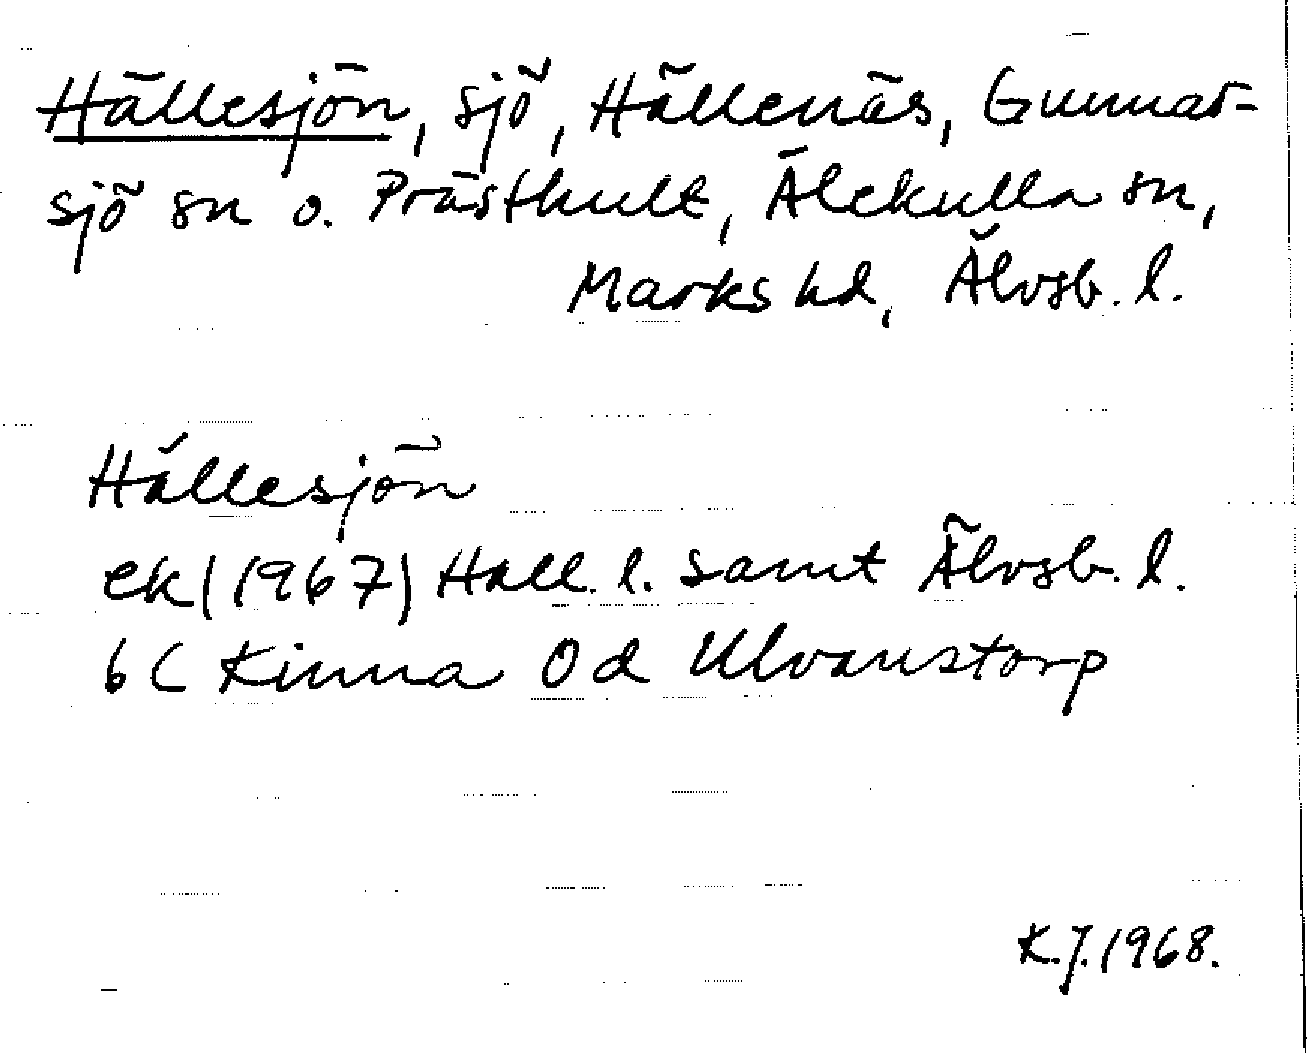 Hällesjön, sjö, Hällenäs, Gunnar-
sjö sn o. Prästhult, Älekulla sn,
Marks hd, Älvsb. l.
Hällesjön
ek (1967) Hall. l. samt Älvsb. l.
6C Kinna 0d Ulvanstorp
K.J. 1968.